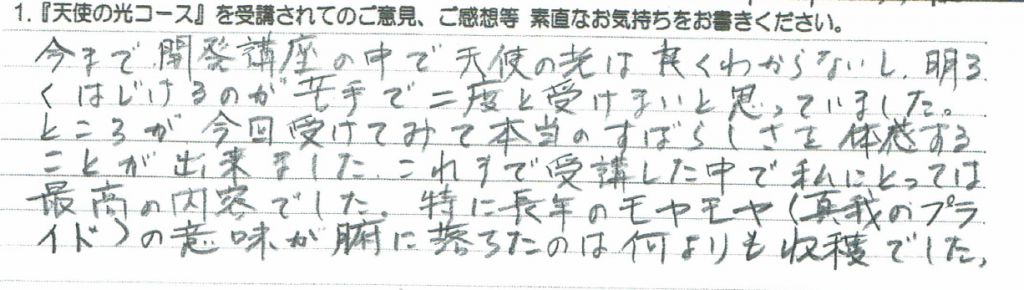 1.『天使の光コース』を受講されてのご意見、ご感想等 素直なお気持ちをお書きください。
今まで開発講座の中で天使の光は良くわからないし、明る
くはじけるのが苦手で二度と受けまいと思っていました。
ところが今回受けてみて本当のすばらしさを体感する
ことが出来ました。これまで受講した中で私にとっては
最高の内容でした。特に長年のモヤモヤ(真我のプラ
イド)の意味が腑に落ちたのは何よりも収穫でした。